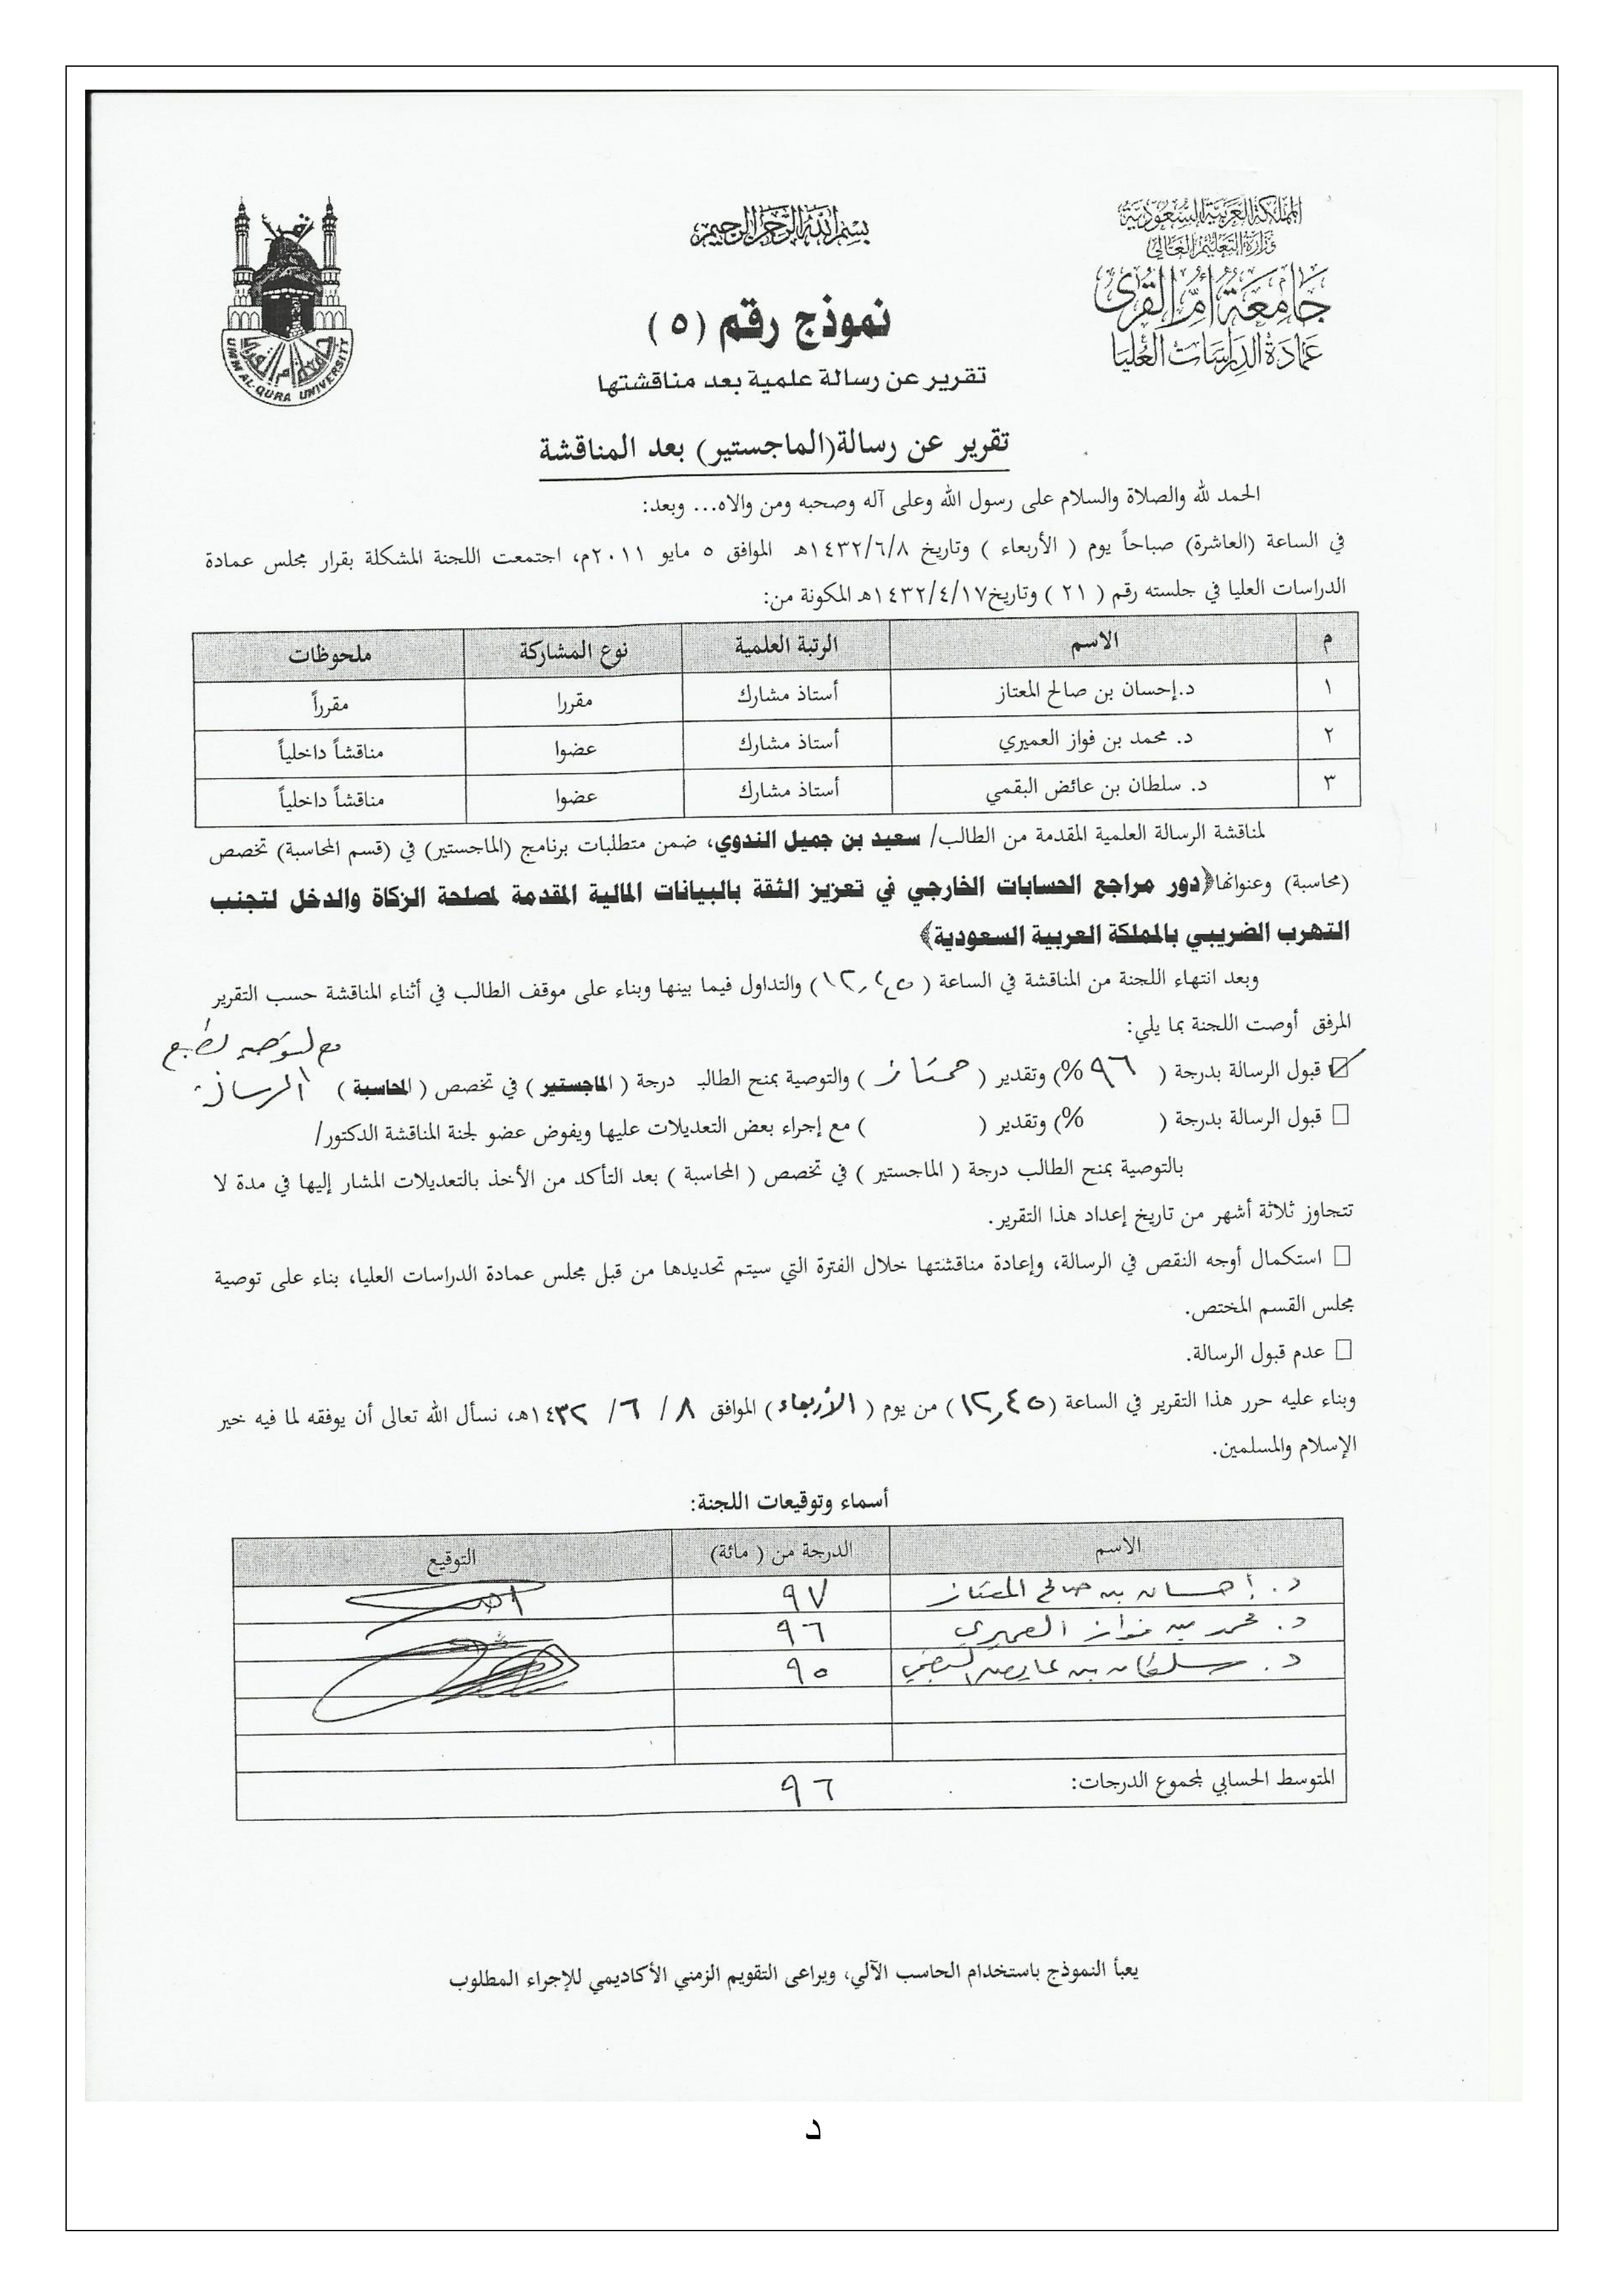 المملكة العربية السعودية
وزارة التعليم العالي
جامعة أم القرى
عمادة الدراسات العليا
بسم الله الرحمن الرحيم
UMM AL-QURA UNIVERSITY
نموذج رقم (٥)
تقرير عن رسالة علمية بعد مناقشتها
تقرير عن رسالة(الماجستير) بعد المناقشة
الحمد لله والصلاة والسلام على رسول الله وعلى آله وصحبه ومن والاه... وبعد:
في الساعة (العاشرة) صباحاً يوم ( الأربعاء ) وتاريخ ١٤٣٢/٦/٨هـ الموافق ٥ مايو ٢٠١١م، اجتمعت اللجنة المشكلة بقرار مجلس عمادة
الدراسات العليا في جلسته رقم ( ٢١ ) وتاريخ١٤٣٢/٤/١٧هـ المكونة من:
م الاسم الرتبة العلمية نوع المشاركة ملحوظات
١ د.إحسان بن صالح المعتاز أستاذ مشارك مقررا مقرراً
٢ د. محمد بن فواز العميري أستاذ مشارك عضوا مناقشاً داخلياً
٣ د. سلطان بن عائض البقمي أستاذ مشارك عضوا مناقشاً داخلياً
لمناقشة الرسالة العلمية المقدمة من الطالب/ سعيد بن جميل الندوي، ضمن متطلبات برنامج (الماجستير) في (قسم المحاسبة) تخصص
(محاسبة) وعنوانها﴿دور مراجع الحسابات الخارجي في تعزيز الثقة بالبيانات المالية المقدمة لمصلحة الزكاة والدخل لتجنب
التهرب الضريبي بالمملكة العربية السعودية﴾
وبعد انتهاء اللجنة من المناقشة في الساعة ( ) والتداول فيما بينها وبناء على موقف الطالب في أثناء المناقشة حسب التقرير
المرفق أوصت اللجنة بما يلي:
☑ قبول الرسالة بدرجة ( ٩٦ %) وتقدير ( ممتاز ) والتوصية بمنح الطالبـ درجة ( الماجستير ) في تخصص ( المحاسبة ) مع التوصية بطبع
الرسالة
□ قبول الرسالة بدرجة ( %) وتقدير ( ) مع إجراء بعض التعديلات عليها ويفوض عضو لجنة المناقشة الدكتور/
بالتوصية بمنح الطالب درجة ( الماجستير ) في تخصص ( المحاسبة ) بعد التأكد من الأخذ بالتعديلات المشار إليها في مدة لا
تتجاوز ثلاثة أشهر من تاريخ إعداد هذا التقرير.
□ استكمال أوجه النقص في الرسالة، وإعادة مناقشتها خلال الفترة التي سيتم تحديدها من قبل مجلس عمادة الدراسات العليا، بناء على توصية
مجلس القسم المختص.
□ عدم قبول الرسالة.
وبناء عليه حرر هذا التقرير في الساعة (١٢,٤٥) من يوم ( الأربعاء ) الموافق ٨ / ٦ / ١٤٣٢هـ، نسأل الله تعالى أن يوفقه لما فيه خير
الإسلام والمسلمين.
أسماء وتوقيعات اللجنة:
الاسم الدرجة من ( مائة) التوقيع
د. إحسان بن صالح المعتاز ٩٧
د. محمد بن فواز العميري ٩٦
د. سلطان بن عايض البقمي ٩٥
المتوسط الحسابي لمجموع الدرجات: ٩٦
يعبأ النموذج باستخدام الحاسب الآلي، ويراعى التقويم الزمني الأكاديمي للإجراء المطلوب
د